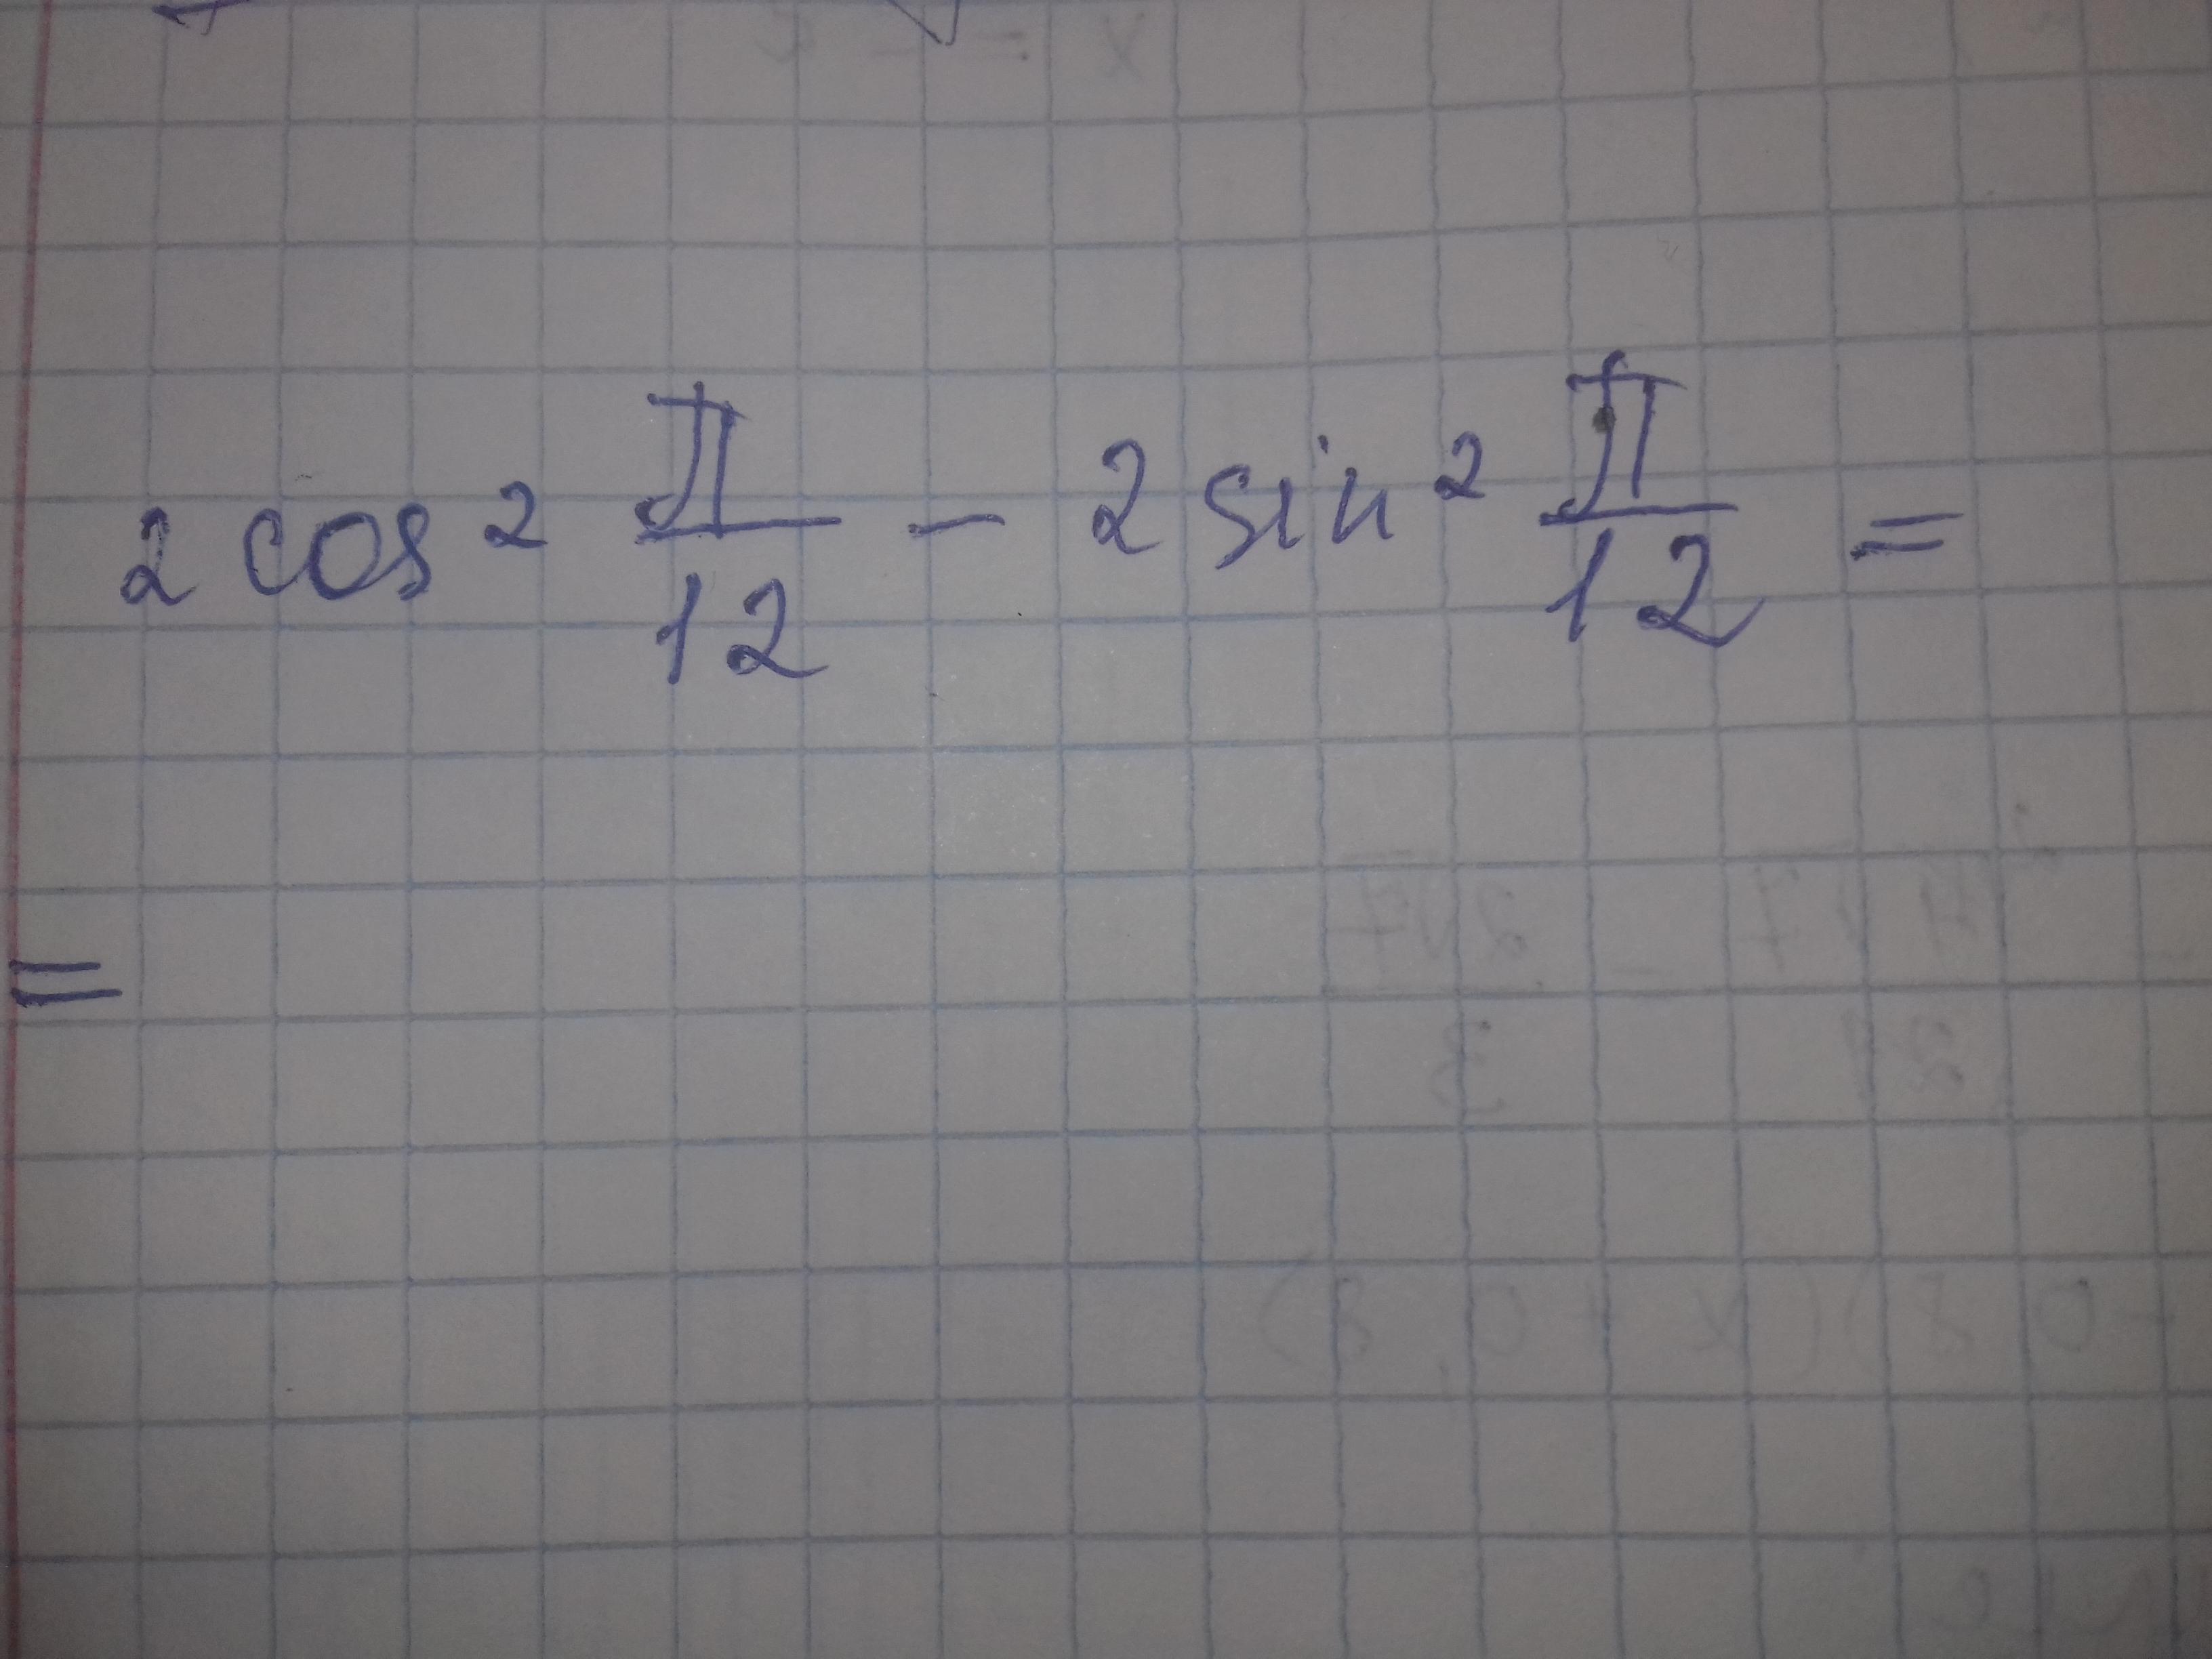 2 cos² π/12 − 2 sin² π/12 =
=